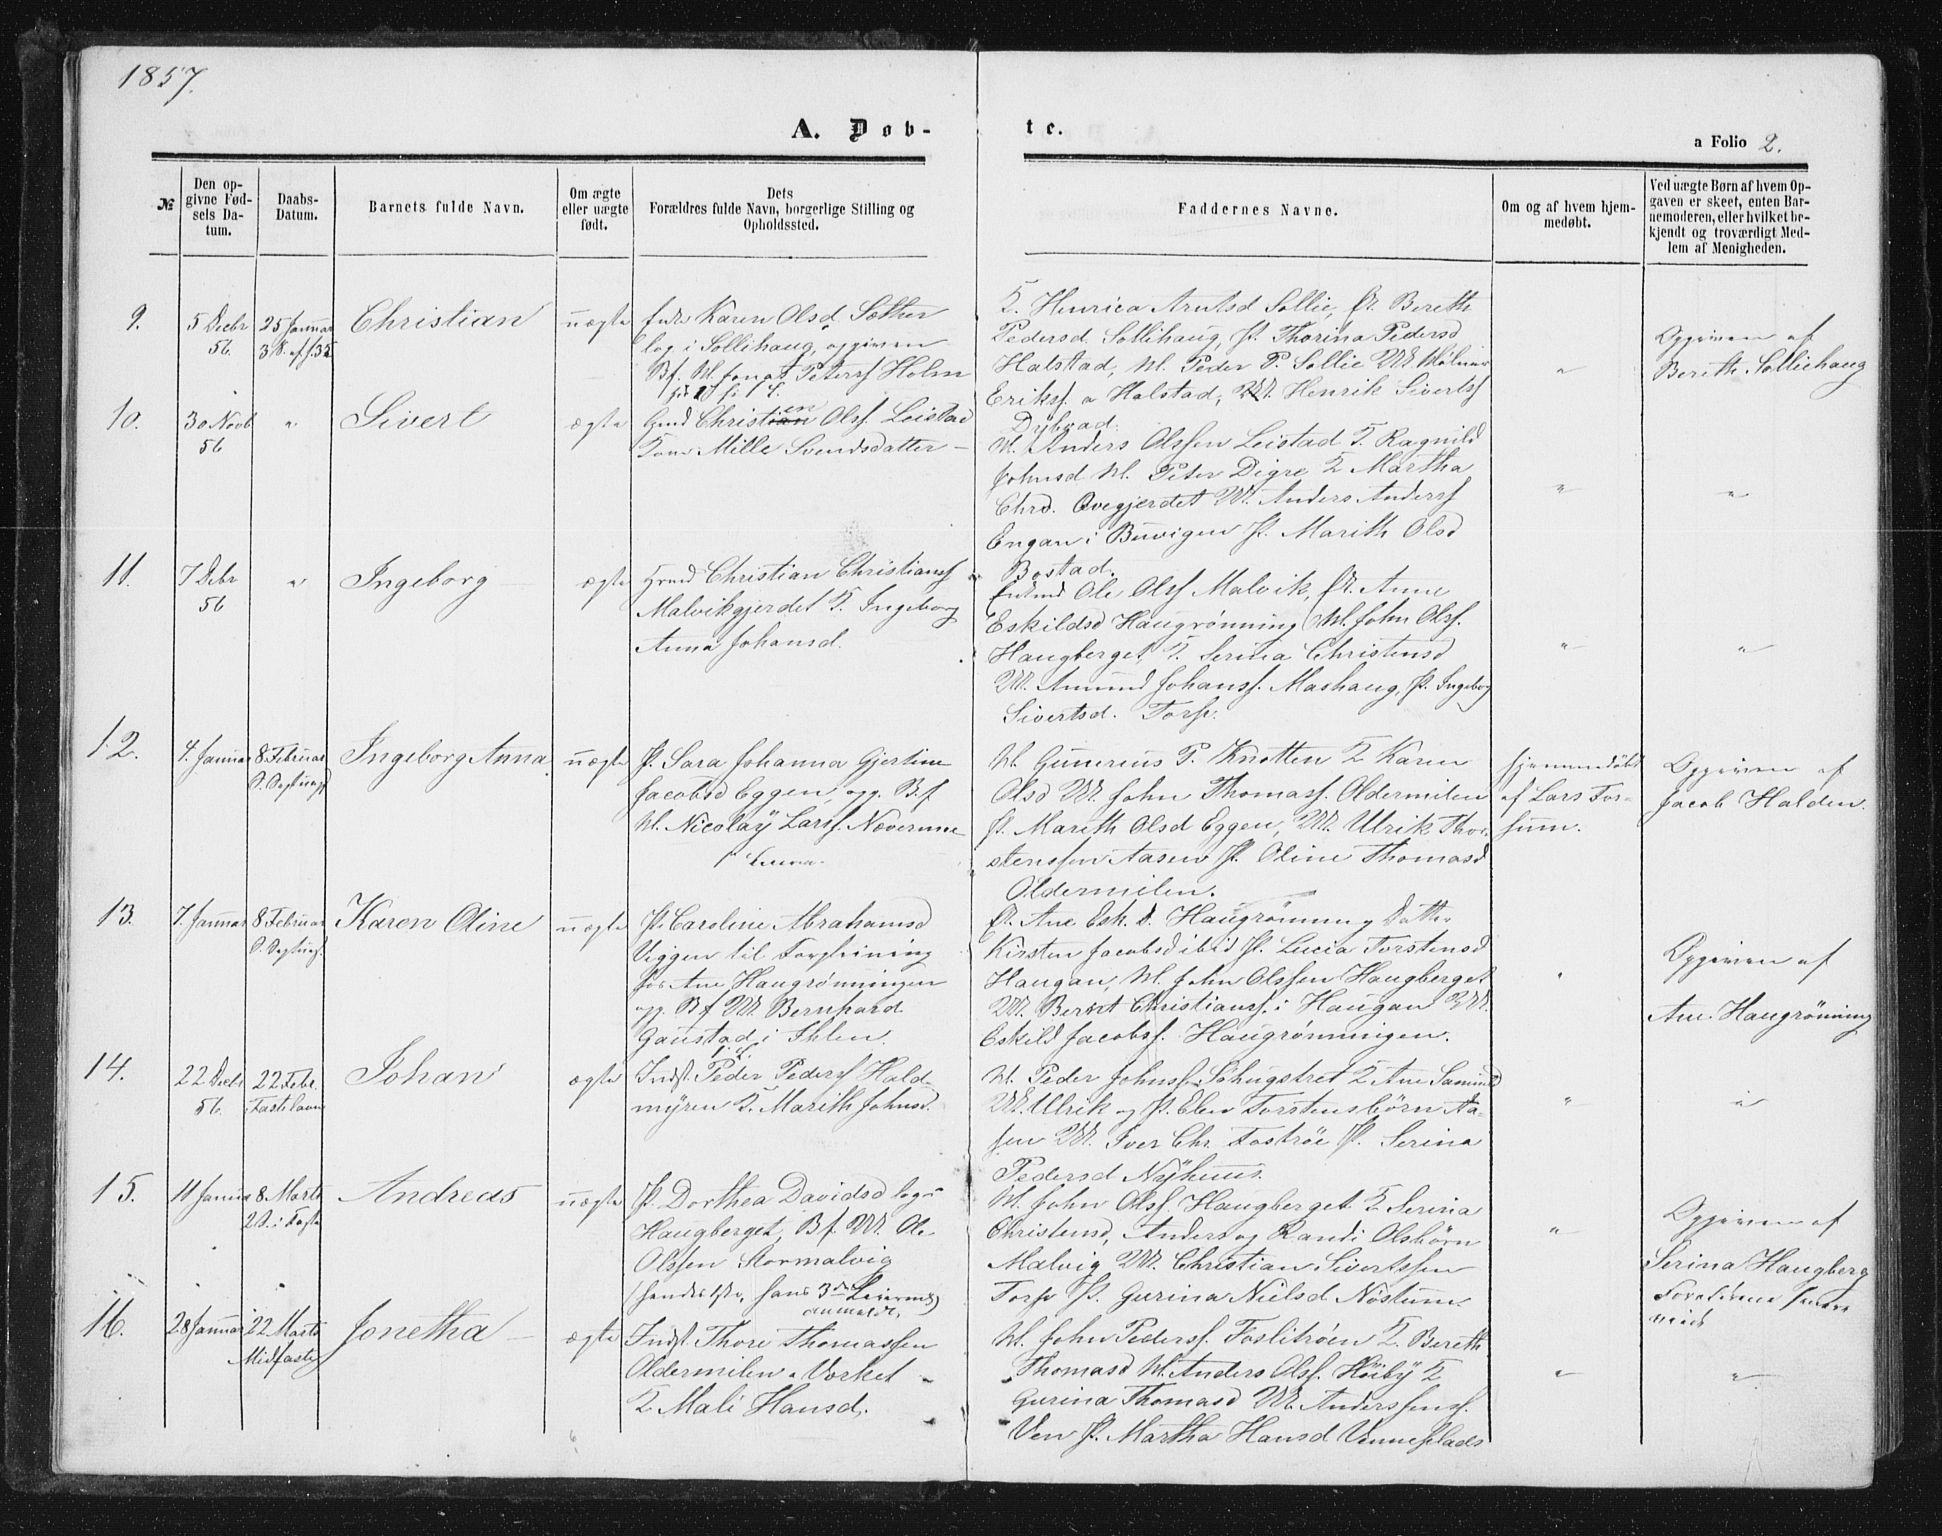 1857.
A. Døb-
te.
a Folio 2.
№
Den op-
givne Fød-
sels Da-
tum.
Daabs-
Datum.
Barnets fulde Navn.
Om ægte
eller uægte
født.
Dets
Forældres fulde Navn, borgerlige Stilling og
Opholdssted.
Faddernes Navne.
Om og af hvem hjem-
medøbt.
Ved uægte Børn af hvem Op-
gaven er skeet, enten Bar-
nemoderen, eller hvilket be-
kjendt og troværdigt Med-
lem af Menigheden.
9.
5 Decbr
56.
25 Januar
3 S. af f 35
Christian
uægte
Enke Karen Olsd Sæther
log. i Sollihaug, opgiven
Bf. M. Jonas Peterss Holm
K. Henrica Arntsd Sollie, E. Bereth
Pedersd. Sollihaug, P. Thorina Pedersd
Halstad, M. Peder P. Sollie UM
Erikss. a Halstad, UM. Henrik Sivertss
Dybvad.
"
Opgiven af
Berith Solliehaug
10.
30 Novb
56
"
Sivert
ægte
Gmd Christen Olss. Leistad
Kone Mille Svendsdatter –
M. Anders Olssen Leistad K. Ragnild
Johnsd M. Peter Digre K Martha
Chrd. Ovegjerdet UM. Anders Anderss
Engan i Buvigen P. Marith Olsd
Bostad.
"
"
11.
7 Debr
56
"
Ingeborg
ægte
Hrmd Christian Christianss
Malvikgjerdet K. Ingeborg
Anna Johansd.
Enkmd Ole Olss Malvik, E. Anne
Eskildsd Haugrønning, M. John Olss.
Haugberget, K. Serina Christensd
UM. Amund Johanss. Mashaug, P. Ingeborg
Sivertsd. Torp.
"
"
12.
4. Januar
8. Februar
Ingeborg Anna.
uægte
P. Sara Johanna Gjertine
Jacobsd Eggen, opg. B.f
M. Nicolay Larss. Næverme
M. Gunerius P. Knotten K Karen
Olsd UM. John Thomass. Oldermilen
P. Marith Olsd Eggen, UM. Ulrik Thor-
stenssen Aasen P. Oline Thomasd
Oldermilen.
hjemmedøbt
af Lars For-
sum.
Opgiven af
Jacob Halden.
13.
7. Januar
8 Februar
Karen Oline
uægte
P. Caroline Abrahamsd
Viggen til Forpleining
for Ane Haugrønningen
opg. Bf UM Bernhard
Gaustad i Ihlen.
E. Ane Esk. d. Haugrønning Datter
Kirsten Jacobsd ibid P. Lucia Torstensd
Haugan, M. John Olssen Haugberget
UM. Bernt Christianss. i Haugan UM.
Eskild Jacobss. Haugrønningen.
"
Opgiven af
Ane Haugrønning
14.
22 Decbr
56.
22 Febr.
Fastelavn
Johan
ægte
Indst. Peder Pederss Hald-
myren K. Marith Johnsd.
M. Peder Johnss. K Ane
UM. Ulrik og P. Elen Torstensbørn Aa-
sen UM. Iver Chr. Fostrøe P. Serina
Pedersd Nyhuus.
"
"
15.
11 Januar
8. Marts
2 S. i Faste
Andreas
uægte
P. Dorthea Davidsd log. i
Haugberget, B f. UM. Ole
Olssen Stormalvig
(hendes 1ste, hans 3die Leiermål
anmeldt.
M. John Olss. Haugberget K Serina
Christensd, Anders og Randi Olsbørn
Malvig UM. Christian Sivertssen
Torp P. Gurina Nielsd Nostum.
"
Opgiven af
Serina Haugberg
16.
28 Januar
22. Marts
Midfaste
Jonetha –
ægte
Indst. Thore Thomassen
Oldermilen – Vorket –
K Mali Hansd.
M. John Pederss. Foslitrøen K. Bereth
Thomasd M. Anders Olss. Höiby K
Gurina Thomasd UM. Anderssens.
Ven P. Martha Hansd Venneplads
"
"